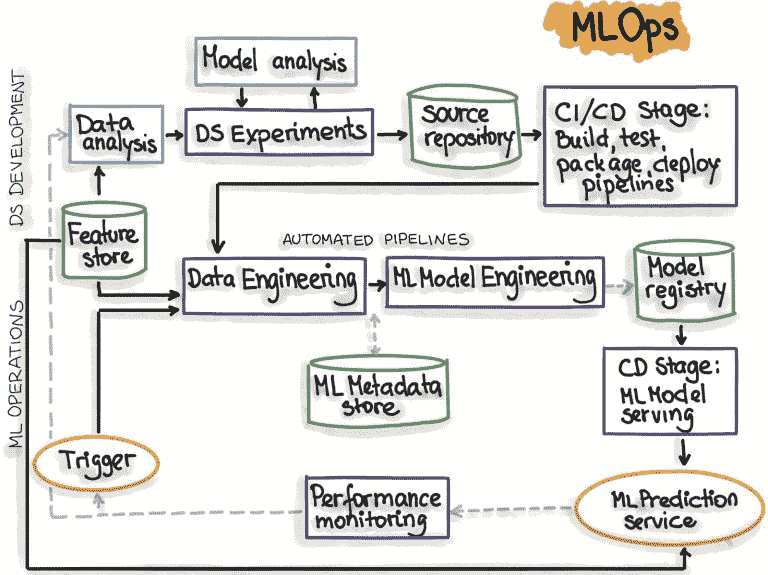 MLOps
Model analysis
DS DEVELOPMENT
Data
analysis
DS Experiments
Source
repository
CI/CD Stage:
Build, test,
package, deploy
pipelines
Feature
store
AUTOMATED PIPELINES
Data Engineering
ML Model Engineering
Model
registry
ML OPERATIONS
ML Metadata
store
CD Stage:
ML Model
serving
Trigger
Performance
monitoring
ML Prediction
service